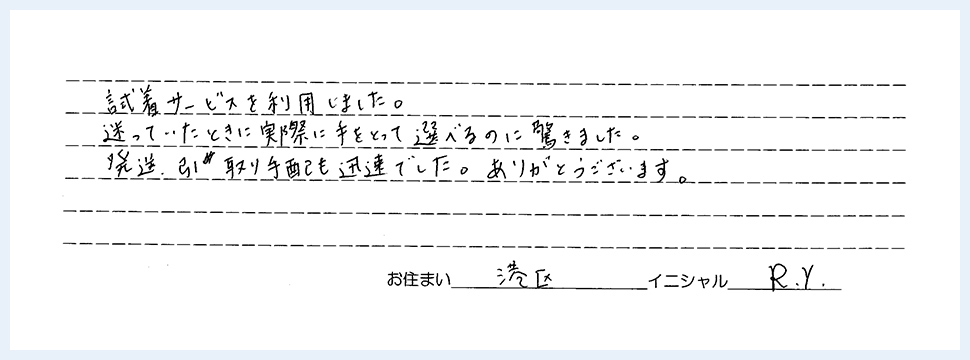 試着サービスを利用しました。
迷っていたときに実際に手をとって選べるのに驚きました。
発送、引き取り手配も迅速でした。ありがとうございます。
お住まい 港区 イニシャル R.Y.